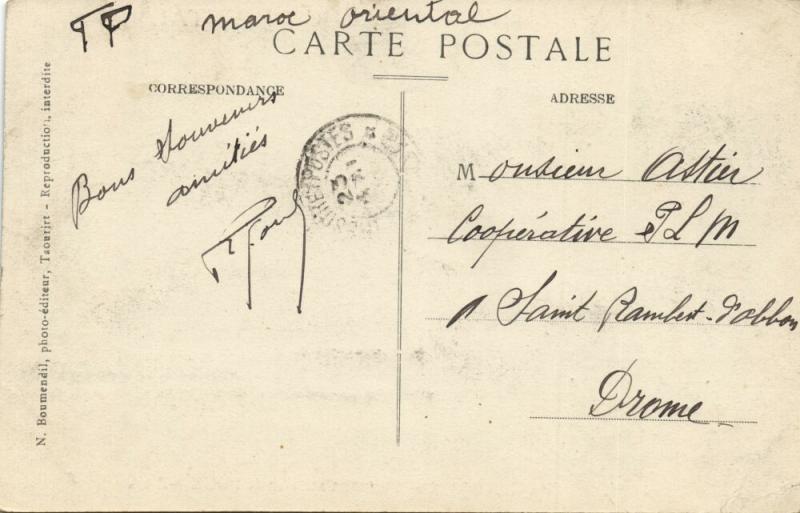 maroc oriental
CARTE POSTALE
CORRESPONDANCE
ADRESSE
Bons Souvenirs
amitiés
Monsieur Astier
Coopérative P L M
à Saint Rambert-d'albon
Drome
POSTES
23
N. Boumendil, photo-éditeur, Taourirt - Reproduction, interdite